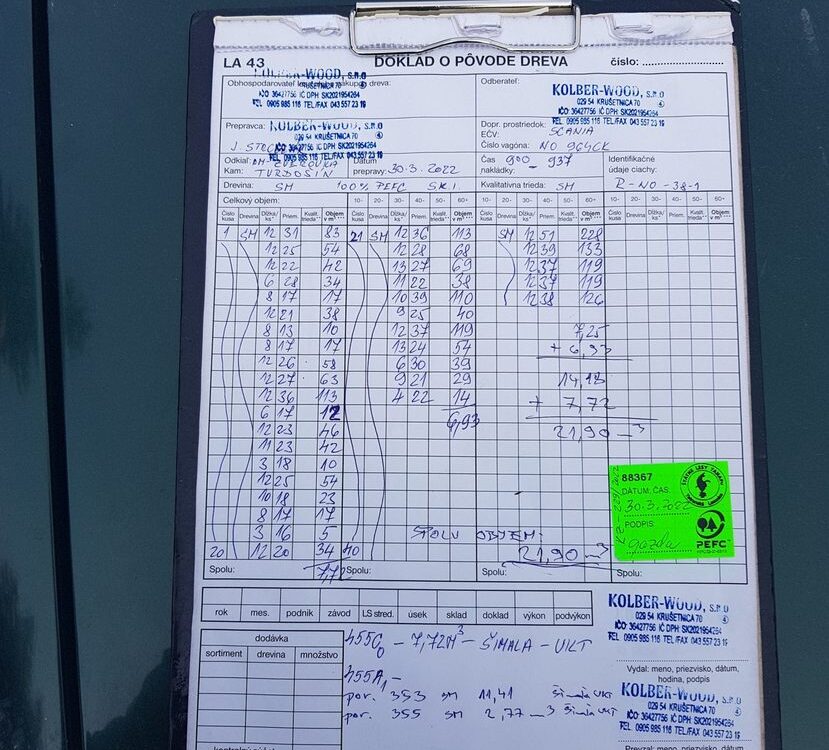 LA 43 DOKLAD O PÔVODE DREVA číslo: ....................
KOLBER-WOOD, s.r.o
029 54 KRUŠETNICA 70
IČO: 36427756 IČ DPH: SK2021954264
TEL. 0905 985 116 TEL./FAX 043 557 23 19
Odberateľ:
KOLBER-WOOD, s.r.o
029 54 KRUŠETNICA 70
IČO: 36427756 IČ DPH: SK2021954264
TEL. 0905 985 116 TEL./FAX 043 557 23 19
Prepravca: KOLBER-WOOD, s.r.o
029 54 KRUŠETNICA 70
IČO: 36427756 IČ DPH: SK2021954264
TEL. 0905 985 116 TEL./FAX 043 557 23 19
Dopr. prostriedok: SCANIA
EČV:
Číslo vagóna: NO 964CK
Odkiaľ:
Kam: TVRDOŠÍN
Dátum prepravy: 30.3.2022
Čas nakládky: 900 - 937
Identifikačné údaje ciachy: R-NO-38-1
Drevina: SM 100% PEFC SK.1. Kvalitatívna trieda: SM
Celkový objem: 10- 20- 30- 40- 50- 60+ 10- 20- 30- 40- 50- 60+ 10- 20- 30- 40- 50- 60+
Číslo kusa Drevina Dĺžka/ks Priem. Kvalit. trieda Objem v m³
1 SM 12 31 83 21 SM 12 36 113 SM 12 51 228
12 25 54 12 28 68 12 39 133
12 22 42 13 27 69 12 37 119
6 28 34 11 22 38 12 37 119
8 17 17 10 39 110 12 38 126
12 21 38 9 25 40
8 13 10 12 37 119 7,25
8 17 17 13 24 54 + 6,93
12 26 58 6 30 39
12 27 63 9 21 29 14,18
12 36 113 4 22 14 + 7,72
6 17 12 6,93
12 23 46 21,90 m³
11 23 42
3 18 10
12 25 54
10 18 23
8 17 17
3 16 5 SPOLU OBJEM:
20 12 20 34 40 21,90 m³
Spolu: 7,72 Spolu: Spolu: Spolu:
88367
DÁTUM, ČAS:
30.3.2022
PODPIS:
gazda
ŠTÁTNE LESY TANAPU
PEFC
rok mes. podnik závod LS stred. úsek sklad doklad výkon podvýkon
KOLBER-WOOD, s.r.o
029 54 KRUŠETNICA 70
IČO: 36427756 IČ DPH: SK2021954264
TEL. 0905 985 116 TEL./FAX 043 557 23 19
dodávka
sortiment drevina množstvo
455C0 - 7,72M³ - ŠIMALA - VKT
455A1 -
por. 353 SM 11,41
por. 355 SM 2,77 m³
Vydal: meno, priezvisko, dátum,
hodina, podpis
KOLBER-WOOD, s.r.o
029 54 KRUŠETNICA 70
IČO: 36427756 IČ DPH: SK2021954264
TEL. 0905 985 116 TEL./FAX 043 557 23 19
Prevzal: meno, priezvisko, dátum,